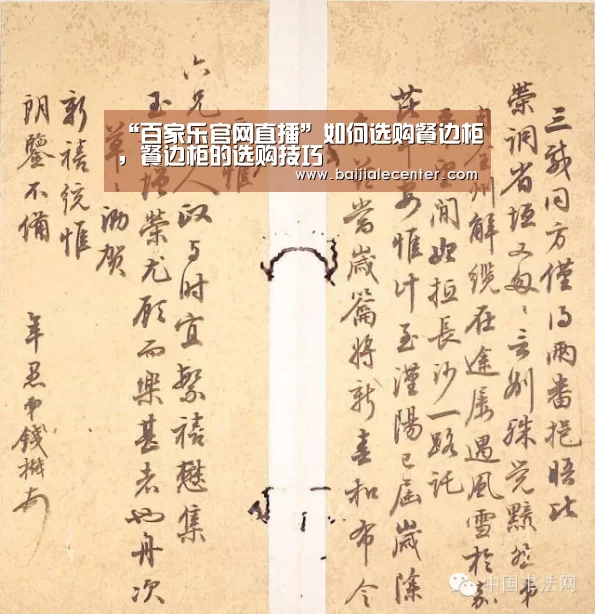 “百家乐官网直播”如何选购餐边柜
，餐边柜的选购技巧
www.baijialecenter.com
三載同方僅得兩番把晤比
省垣又匆匆言別殊覺黯然
州解纜在途屢遇風雪於
間始抵長沙一路託
平安惟至漢陽已屆歲除
當歲籥將新青和布令
惟
六兄人政與時宜繁禧懋集
玉增榮尤願而樂甚者也舟次
草草泐賀
新禧統惟
朗鑒不備
年愚弟錢樾
中国书法网